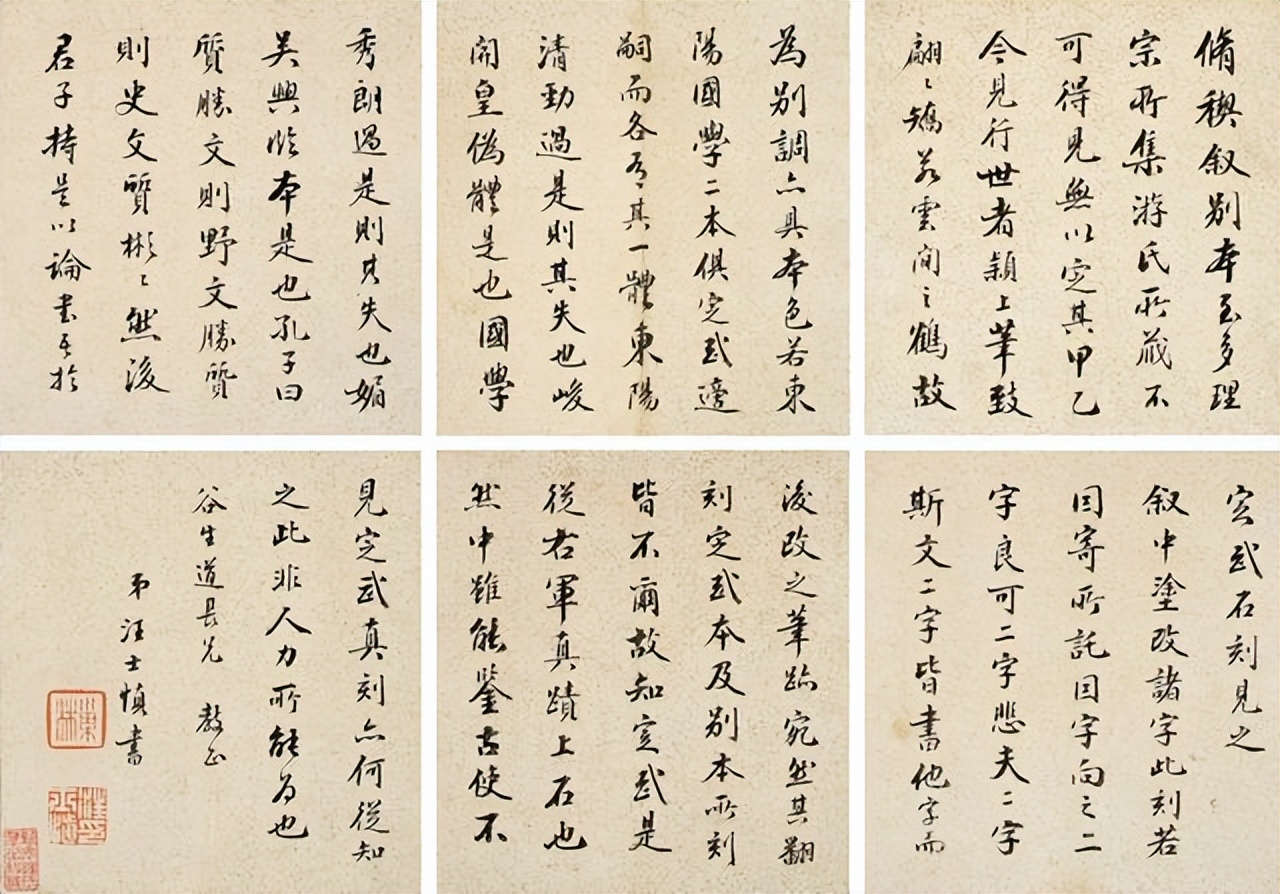 脩稧叙别本至多理
宗所集游氏所藏不
可得見無以定其甲乙
今見行世者潁上筆致
翩〻矯若雲間之鶴故
為别調亦具本色若東
陽國學二本俱定武適
嗣而各有其一體東陽
清勁過是則其失也峻
開皇偽體是也國學
秀朗過是則其失也媚
吴興臨本是也孔子曰
質勝文則野文勝質
則史文質彬〻然後
君子持是以論書吾於
定武石刻見之
叙中塗改諸字此刻若
因寄所託因字向之二
字良可二字悲夫二字
斯文二字皆書他字而
後改之筆跡宛然其翻
刻定武本及别本所刻
皆不爾故知定武是
從右軍真蹟上石也
然中雖能鑒古使不
見定武真刻亦何從知
之此非人力所能為也
谷生道長兄 教正
弟汪士慎書
巢林